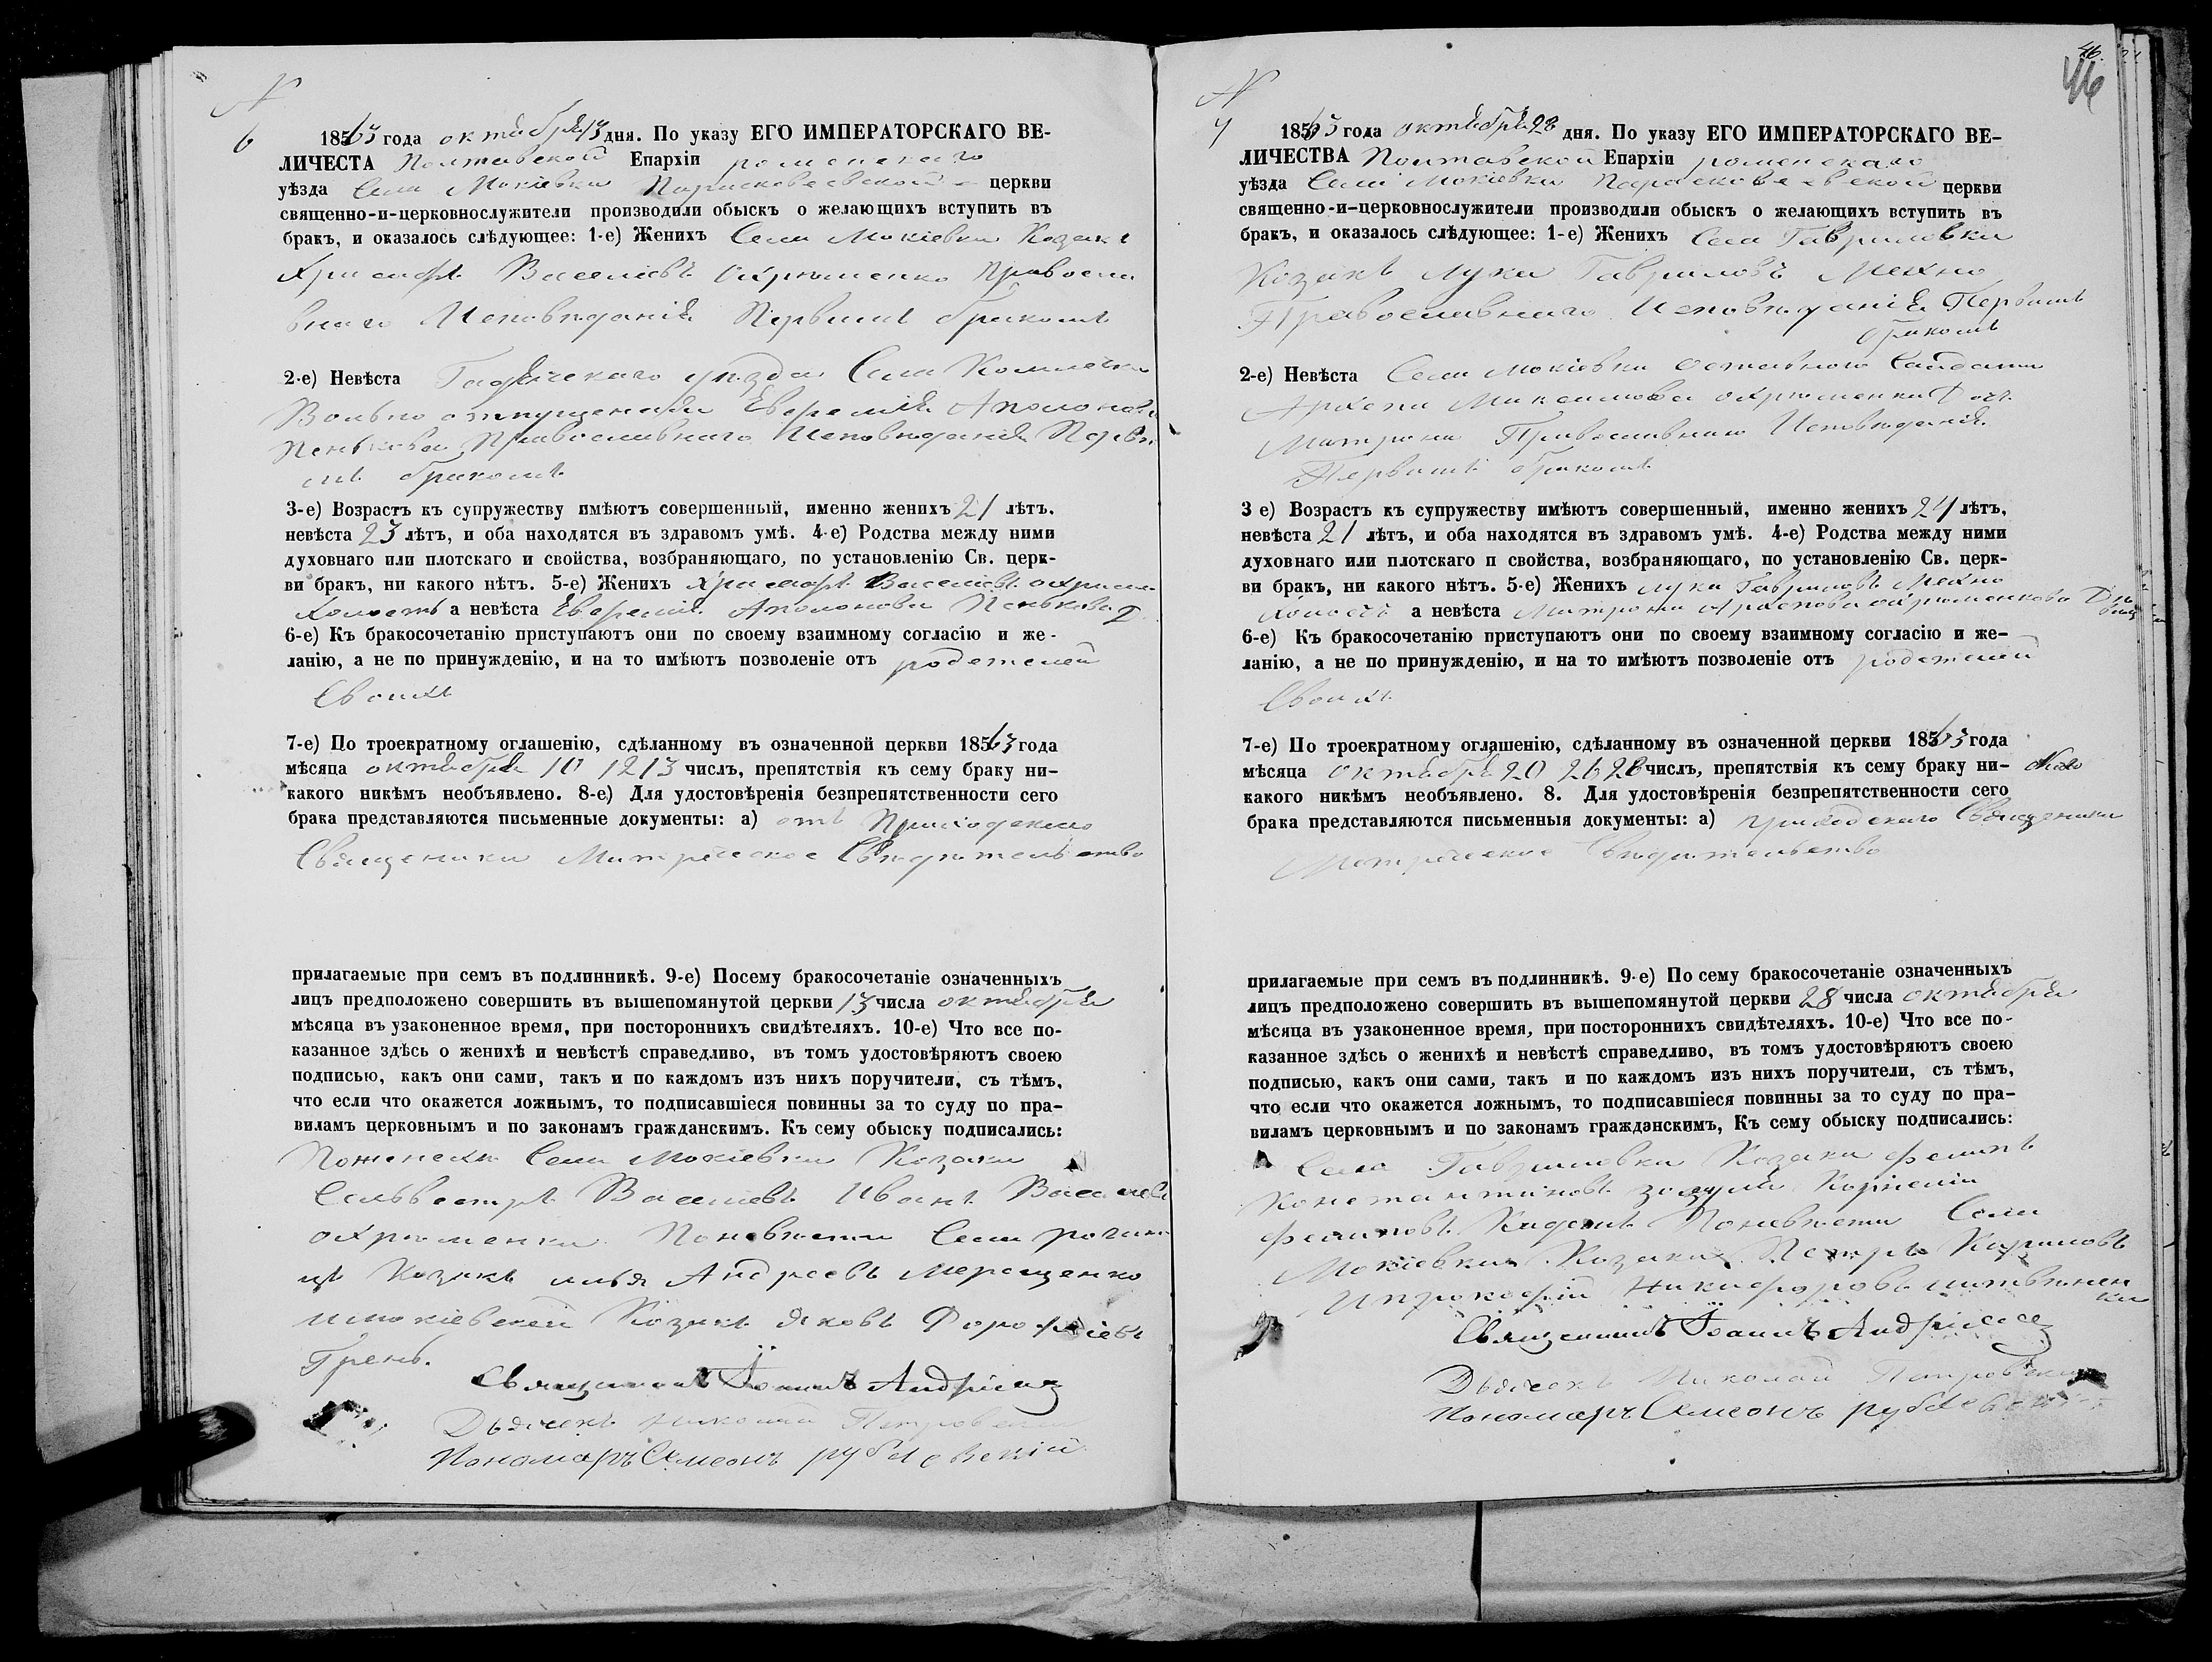 №
6
1863 года октября 13 дня. По указу ЕГО ИМПЕРАТОРСКАГО ВЕ-
ЛИЧЕСТА Полтавской Епархіи роменскаго
уѣзда Села Мокіевки Параскевіевской церкви
священно-и-церковнослужители производили обыскъ о желающихъ вступить въ
бракъ, и оказалось слѣдующее: 1-е) Женихъ Села Мокіевки Козакъ
Василіевъ Охрименко Правосла
внаго Исповѣданія Первымъ бракомъ
2-е) Невѣста Гадячскаго уѣзда Села
Вольно отпущенная Аполонова
Пенькова Православнаго Исповѣданія Первы
мъ бракомъ
3-е) Возрастъ къ супружеству имѣютъ совершенный, именно женихъ 21 лѣтъ.
невѣста 23 лѣтъ, и оба находятся въ здравомъ умѣ. 4-е) Родства между ними
духовнаго или плотскаго и свойства, возбраняющаго, по установленію Св. церк-
ви бракъ, ни какого нѣтъ. 5-е) Женихъ Василіевъ
холостъ а невѣста Аполонова Пенькова Д
6-е) Къ бракосочетанію приступаютъ они по своему взаимному согласію и же-
ланію, а не по принужденію, и на то имѣютъ позволеніе отъ родетелей
Своихъ
7-е) По троекратному оглашенію, сдѣланному въ означенной церкви 1863 года
мѣсяца октября 10 12 13 числъ, препятствія къ сему браку ни-
какого никѣмъ необъявлено. 8-е) Для удостовѣренія безпрепятственности сего
брака представляются письменные документы: а) отъ Приходскаго
Священника Митрическое Свидѣтельство
прилагаемые при семъ въ подлинникѣ. 9-е) Посему бракосочетаніе означенныхъ
лицъ предположено совершить въ вышепомянутой церкви 13 числа октября
мѣсяца въ узаконенное время, при постороннихъ свидѣтеляхъ. 10-е) Что все по-
казанное здѣсь о женихѣ и невѣстѣ справедливо, въ томъ удостовѣряютъ своею
подписью, какъ они сами, такъ и по каждомъ изъ нихъ поручители, съ тѣмъ,
что если что окажется ложнымъ, то подписавшіеся повинны за то суду по пра-
виламъ церковнымъ и по законамъ гражданскимъ. Къ сему обыску подписались:
Поженехи Села Мокіевки Козаки
Сельвестръ Василіевъ Иванъ
охрименки Поневѣсти Села
Козакъ илья Андреевъ Мерещенко
имокіевскей Козакъ яковъ
Грень.
Священникъ Іоаннъ
Дьячекъ Николай Петровскій
Пономаръ Симеонъ
46.
46
№
7
1863 года октября 28 дня. По указу ЕГО ИМПЕРАТОРСКАГО ВЕ-
ЛИЧЕСТВА Полтавской Епархіи роменскаго
уѣзда Села Мокіевки Параскевіевской церкви
священно-и-церковнослужители производили обыскъ о желающихъ вступить въ
бракъ, и оказалось слѣдующее: 1-е) Женихъ Села Гавриловки
Козакъ Лука Гавриловъ Мехно
Православнаго Исповѣданія Первымъ
бракомъ
2-е) Невѣста Села Мокіевки Солдата
Архипа Максимова охрименка Доч.
Матрона Православнаго Исповѣданія
Первымъ бракомъ
3 е) Возрастъ къ супружеству имѣютъ совершенный, именно женихъ 24 лѣтъ,
невѣста 21 лѣтъ, и оба находятся въ здравомъ умѣ. 4-е) Родства между ними
духовнаго или плотскаго п свойства, возбраняющаго, по установленію Св. церк-
ви бракъ, ни какого нѣтъ. 5-е) Женихъ лука Гавриловъ Мехно
холостъ а невѣста Матрона Архепова охрименкова
6-е) Къ бракосочетанію приступаютъ они по своему взаимному согласію и же-
ланію, а не по принужденію, и на то имѣютъ позволеніе отъ родетелей
Своихъ
7-е) По троекратному оглашенію, сдѣланному въ означенной церкви 1863 года
мѣсяца октября 20 26 28 числъ, препятствія къ сему браку ни-
какого никѣмъ необъявлено. 8. Для удостовѣренія безпрепятственности сего
брака представляются письменныя документы: а) приходскаго Священника
Метрическое Свидѣтельство
прилагаемые при семъ въ подлинникѣ. 9-е) По сему бракосочетаніе означенныхъ
лицъ предположено совершить въ вышепомянутой церкви 28 числа октября
мѣсяца въ узаконенное время, при постороннихъ свидѣтеляхъ. 10-е) Что все по-
казанное здѣсь о женихѣ и невѣстѣ справедливо, въ томъ удостовѣряютъ своею
подписью, какъ они сами, такъ и по каждомъ изъ нихъ поручители, съ тѣмъ,
что если что окажется ложнымъ, то подписавшіеся повинны за то суду по пра-
виламъ церковнымъ и по законамъ гражданскимъ, Къ сему обыску подписались:
Села Гавриловки Козаки
Константиновъ Корнелій
Поневѣсти Села
Мокіевки Козаки Петръ
Никифоровъ
Священникъ Іоаннъ
Дьячекъ Николай Петровскій
Пономаръ Симеонъ